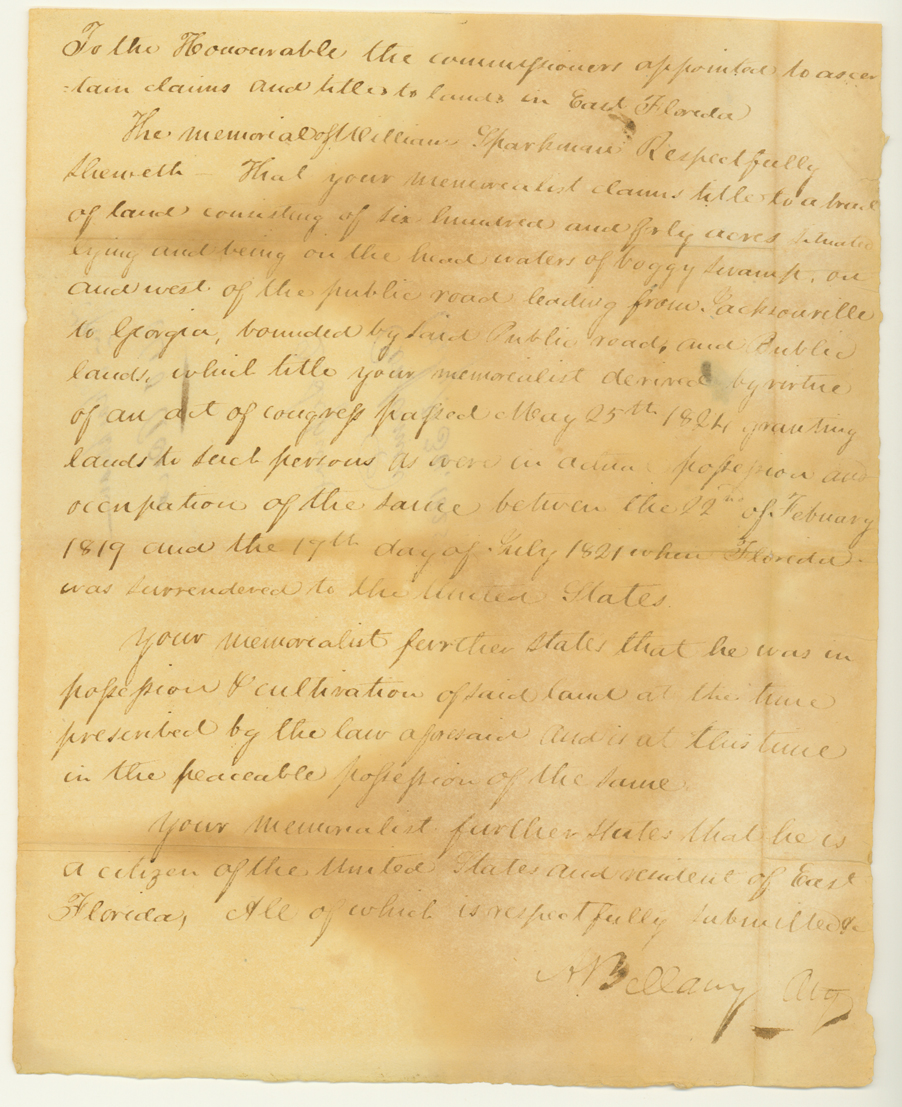 To the Honourable the commissioners appointed to ascer
-tain claims and titles to lands in East Florida
The memorial of William Sparkman Respectfully
Sheweth – That your memorialist claims title to a tract
of land consisting of six hundred and forty acres situate
lying and being on the head waters of boggy swamp, on
and west of the public road leading from Jacksonville
to Georgia, bounded by said Public road, and Public
lands, which title your memorialist derived by virtue
of an act of congress passed May 25th 1824 granting
lands to such persons as were in actual possession and
occupation of the same between the 22nd of Febuary
1819 and the 17th day of July 1821 when Florida
was surrendered to the United States.
Your memorialist further states that he was in
possession & cultivation of said land at the time
prescribed by the law aforesaid and is at this time
in the peaceable possession of the same.
Your memorialist further states that he is
a citizen of the United States and resident of East
Florida, All of which is respectfully submitted &c
A Bellamy Atty